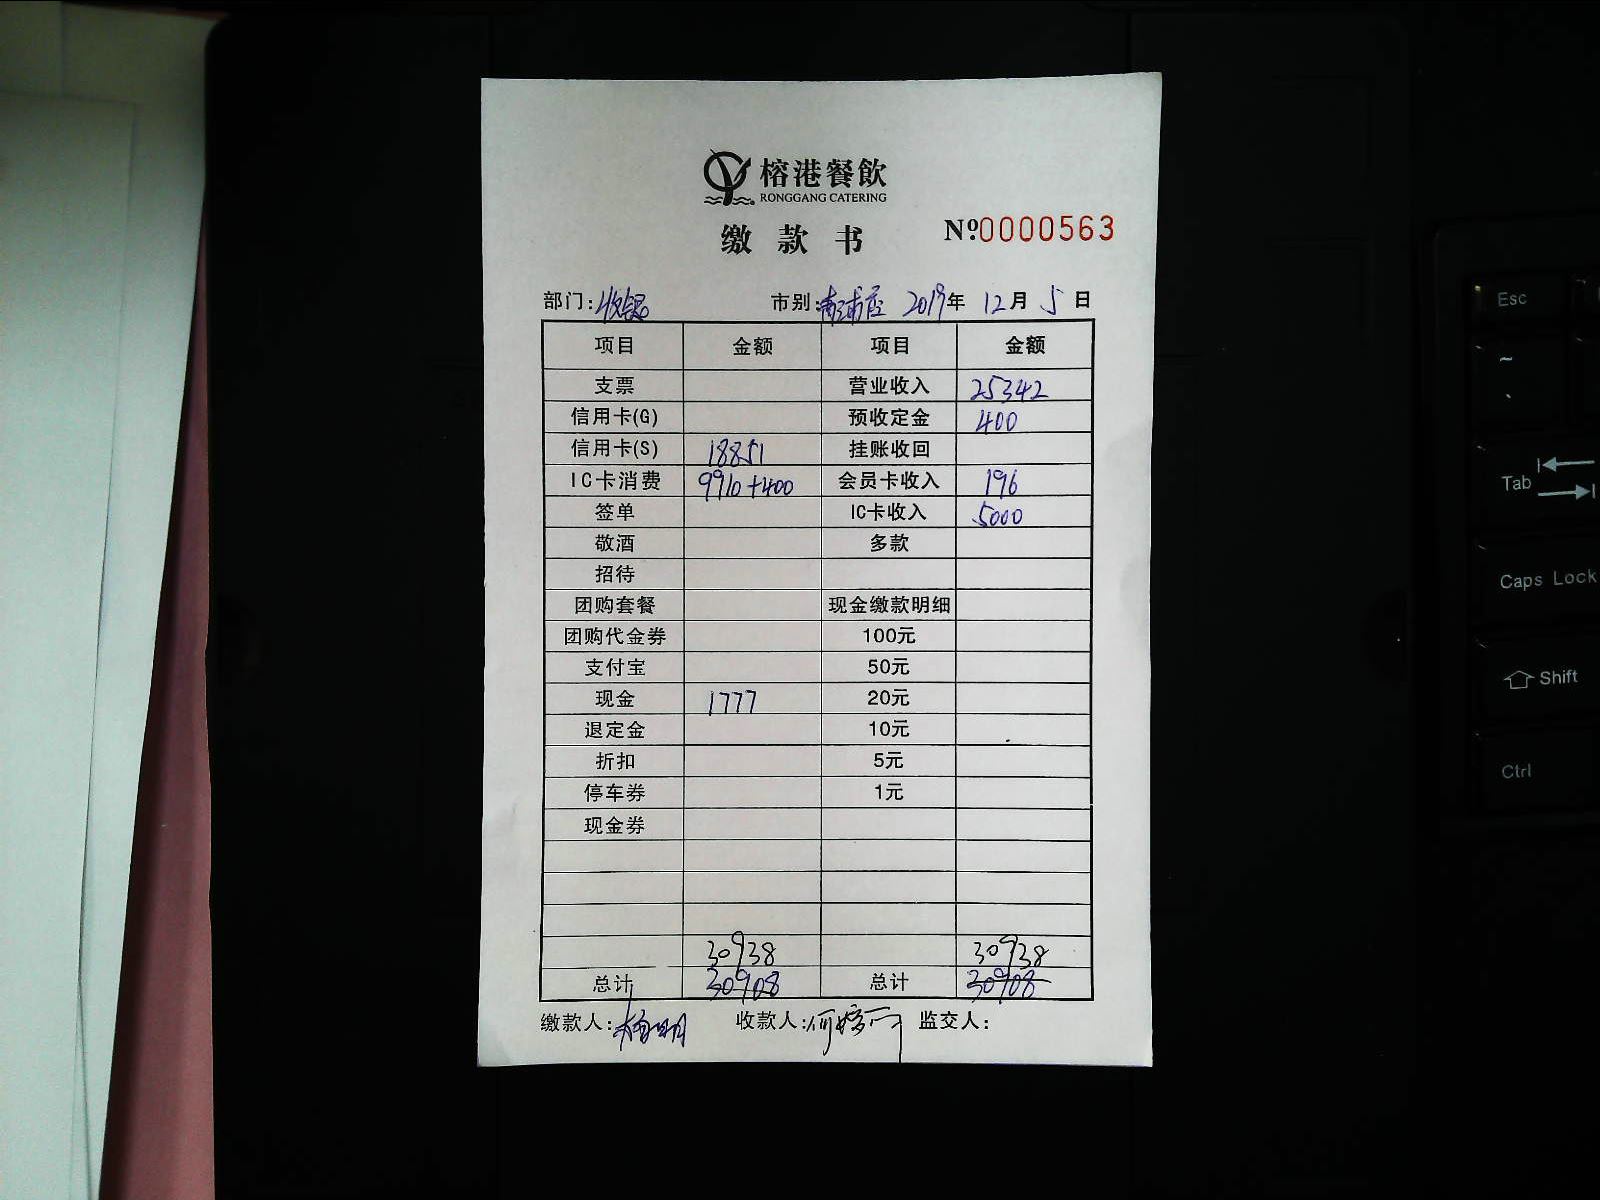 榕港餐飲
RONGGANG CATERING
缴款书 №0000563
部门:收银 市别:南浦店 2019年 12月 5日
项目 金额 项目 金额
支票 营业收入 25342
信用卡(G) 预收定金 400
信用卡(S) 18851 挂账收回
IC卡消费 9910+400 会员卡收入 196
签单 IC卡收入 5000
敬酒 多款
招待
团购套餐 现金缴款明细
团购代金券 100元
支付宝 50元
现金 1777 20元
退定金 10元
折扣 5元
停车券 1元
现金券
30938 30938
总计 30908 总计 30908
缴款人: 收款人: 监交人:
Esc
~
Tab
Caps Lock
Shift
Ctrl